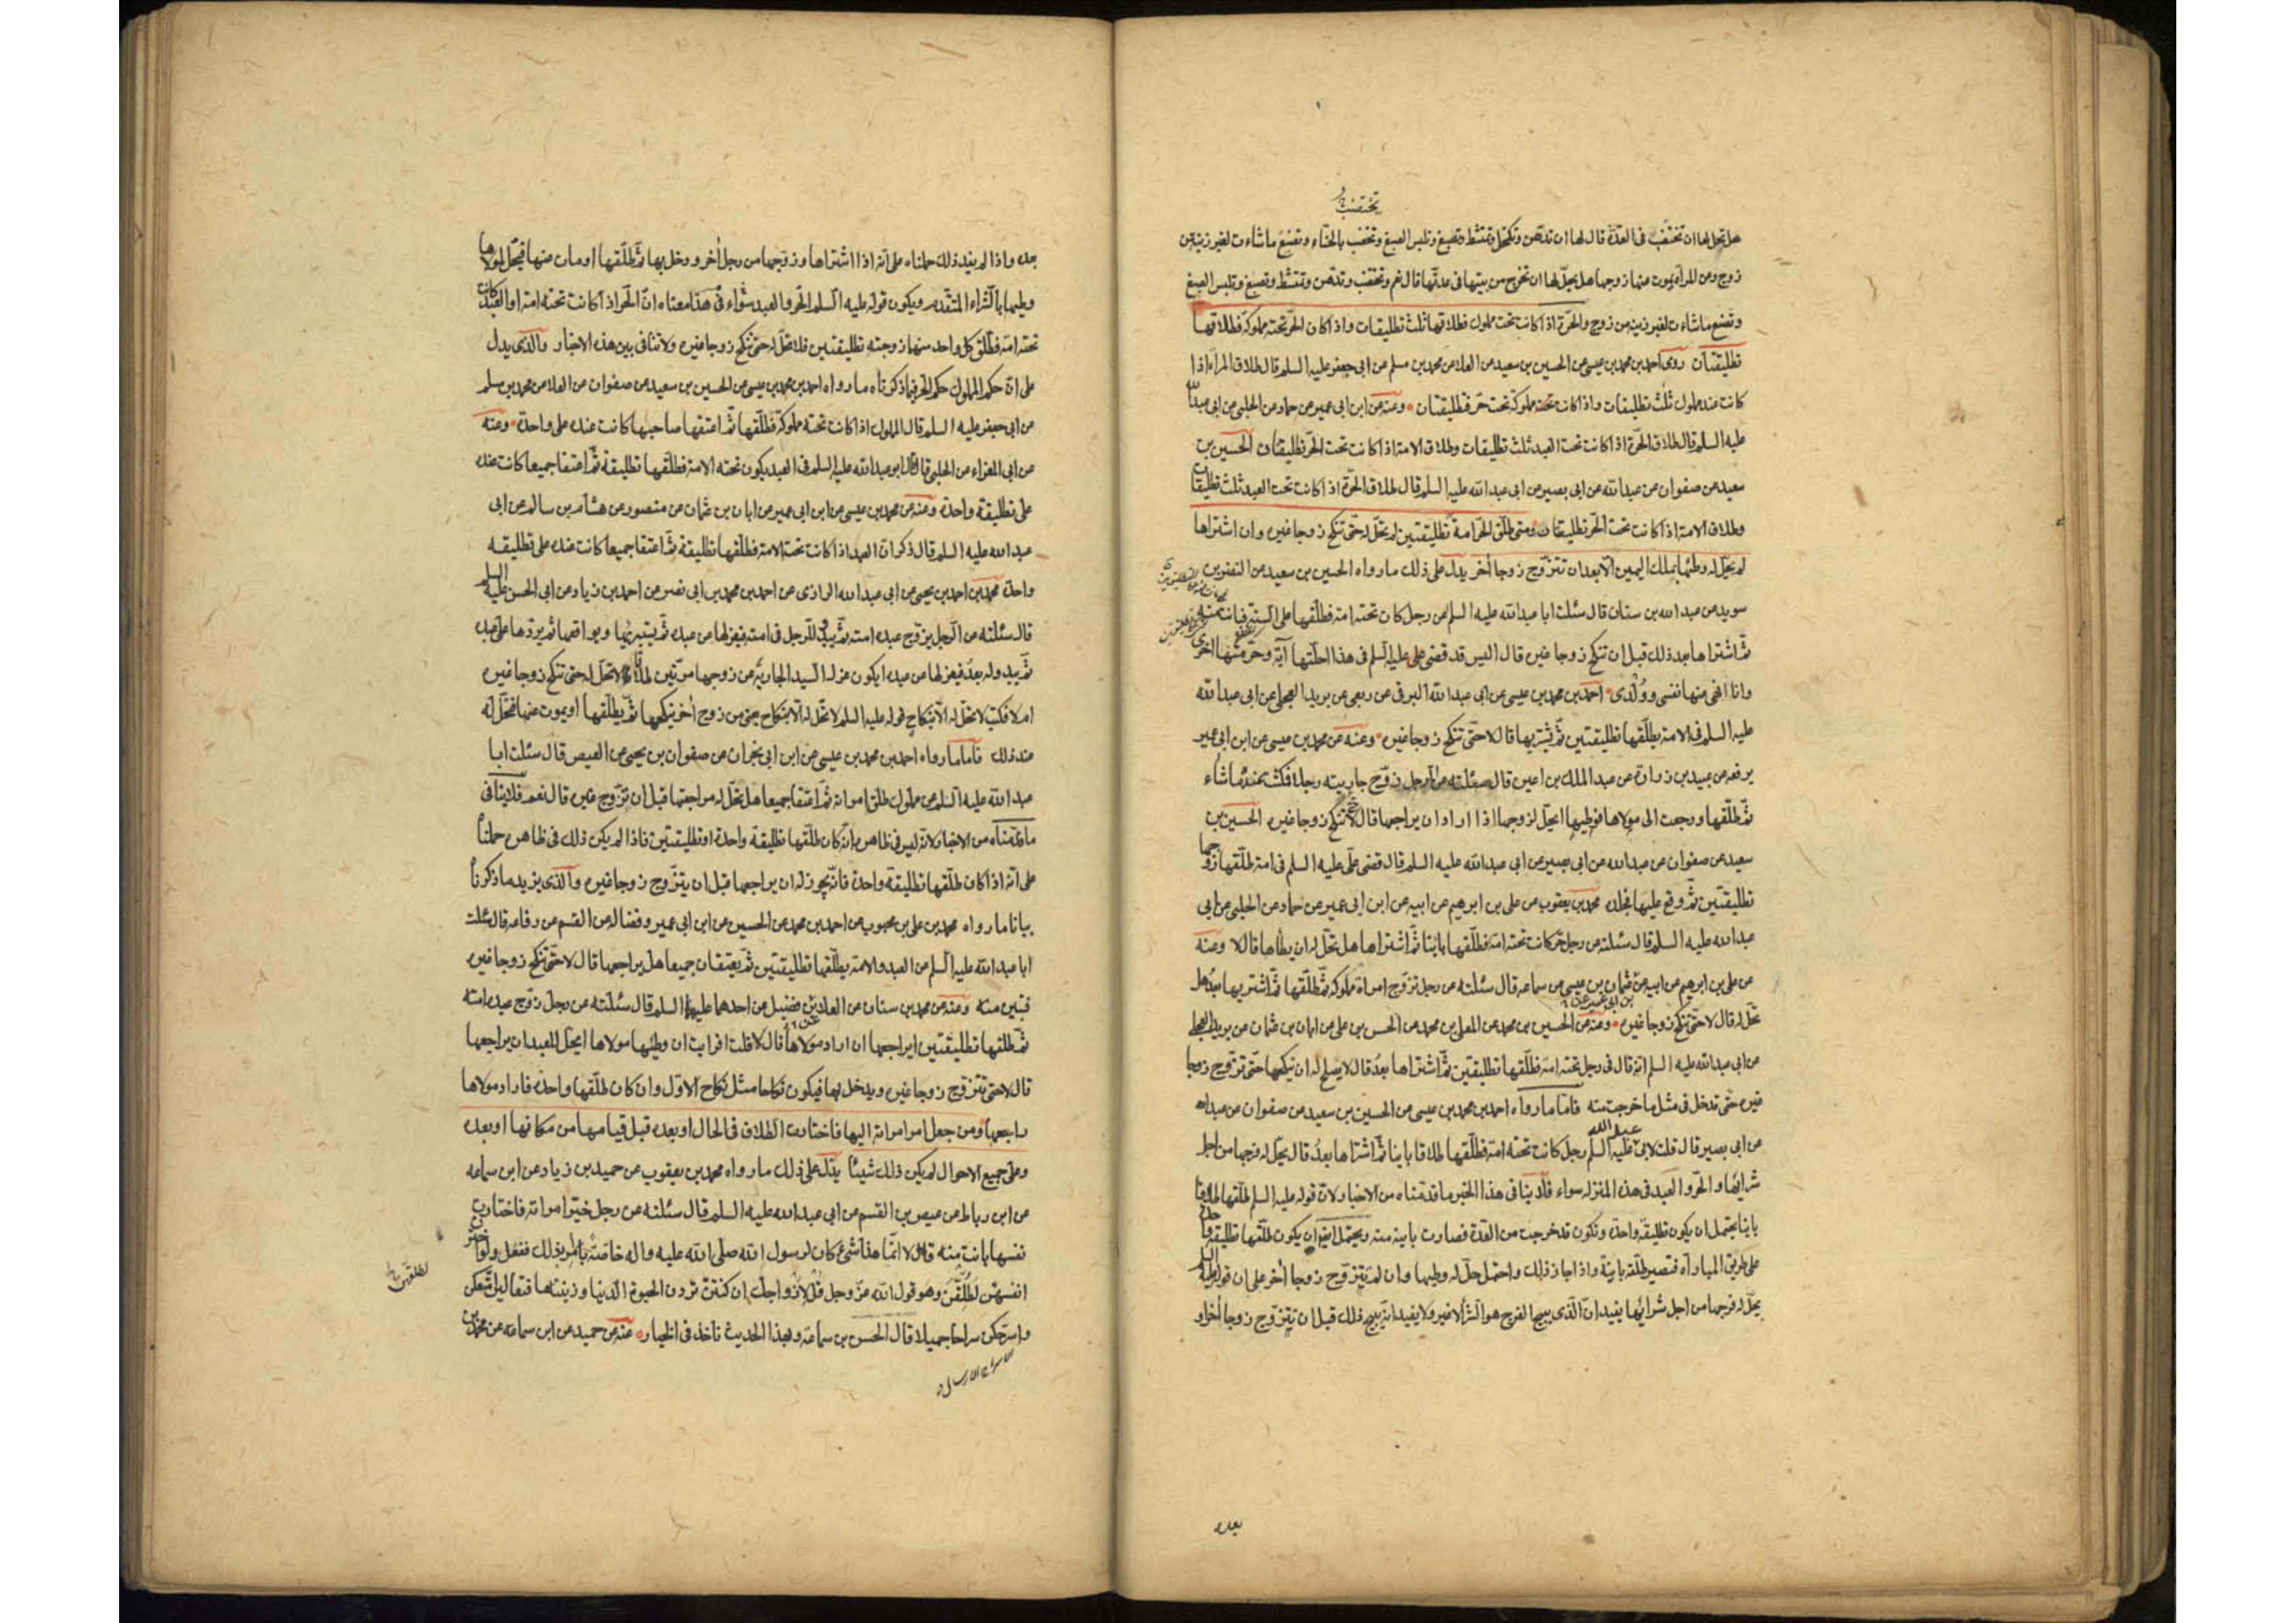 تختضب
هل تحل لها ان تختضب فى العدة قال لها ان تدهن وتكتحل وتمتشط وتصبغ وتلبس الصبغ وتختضب بالحناء وتصنع ماشاءت لغير زينة من
زوج وعن المراة يموت عنها زوجها هل يحل لها ان تخرج من بيتها فى عدتها قال نعم وتختضب وتدهن وتمتشط وتصبغ وتلبس الصبغ
وتصنع ماشاءت لغير زينه من زوج والحرة اذا كانت تحت مملوك فطلاقها ثلث تطليقات واذا كان الحر تحته مملوكة فطلاقها
تطليقتان روى احمد بن محمد بن عيسى عن الحسين بن سعيد عن العلا عن محمد بن مسلم عن ابى جعفر عليه السلم قال طلاق المراة اذا
كانت عند مملوك ثلث تطليقات واذا كانت مملوكة تحت حر فتطليقتان وعنه عن ابن ابى عمير عن حماد عن الحلبى عن ابى عبدالله
عليه السلم قال طلاق الحرة اذا كانت تحت العبد ثلث تطليقات وطلاق الامة اذا كانت تحت الحر تطليقتان الحسين بن
سعيد عن صفوان عن عبدالله عن ابى بصير عن ابى عبدالله عليه السلم قال طلاق الحرة اذا كانت تحت العبد ثلث تطليقات
وطلاق الامة اذا كانت تحت الحر تطليقتان ومتى طلق الحر امة تطليقتين لم تحل له حتى تنكح زوجا غيره وان اشتراها
لم يحل له وطئها بملك اليمين الا بعد ان تتزوج زوجا اخر يدل على ذلك مارواه الحسين بن سعيد عن النضر بن
سويد عن عبدالله بن سنان قال سئلت ابا عبدالله عليه السلم عن رجل كان تحته امة فطلقها على السنة فبانت منه
ثم اشتراها بعد ذلك قبل ان تنكح زوجا غيره قال اليس قد قضى على عليه السلم فى هذا احلتها آية وحرمتها اخرى
وانا انهى عنها نفسى وولدى احمد بن محمد بن عيسى عن ابى عبدالله البرقى عن ربعى عن بريد العجلى عن ابى عبدالله
عليه السلم فى الامة يطلقها تطليقتين ثم يشتريها قال لا حتى تنكح زوجا غيره وعنه عن محمد بن عيسى عن ابن ابى عمير
يرفعه عن عبيد بن زرارة عن عبدالملك بن اعين قال سئلته عن الرجل زوج جاريته رجلا فمكثت عنده ماشاء
ثم طلقها ورجعت الى مولاها فوطيها ايحل لزوجها اذا اراد ان يراجعها قال لا حتى تنكح زوجا غيره الحسين بن
سعيد عن صفوان عن عبدالله عن ابى بصير عن ابى عبدالله عليه السلم قال قضى على عليه السلم فى امة طلقها زوجها
تطليقتين ثم وقع عليها فجلده محمد بن يعقوب عن على بن ابرهيم عن ابيه عن ابن ابى عمير عن حماد عن الحلبى عن ابى
عبدالله عليه السلم قال سئلته عن رجل حر كانت تحته امة فطلقها باينا ثم اشتراها هل تحل له ان يطاها قال لا وعنه
عن على بن ابرهيم عن ابيه عن عثمان بن عيسى عن سماعه قال سئلته عن رجل تزوج امراة مملوكه ثم طلقها ثم اشتريها بعد هل
تحل له قال لا حتى تنكح زوجا غيره وعنه عن الحسين بن محمد عن المعلى بن محمد عن الحسن بن على عن ابان بن عثمان عن بريد العجلى
عن ابى عبدالله عليه السلم انه قال فى رجل تحته امة فطلقها تطليقتين ثم اشتراها بعد قال لا يصلح له ان ينكحها حتى تزوج زوجا
غيره حتى تدخل فى مثل ماخرجت منه فاما مارواه احمد بن محمد بن عيسى عن الحسين بن سعيد عن صفوان عن عبدالله
عن ابى بصير قال قلت لابى عبدالله عليه السلم رجل كانت تحته امة فطلقها طلاقا باينا ثم اشتراها بعد قال يحل له فرجها من اجل
شرائها والحر والعبد فى هذه المنزله سواء فلا ينافى هذا الخبر ماقدمناه من الاخبار لان قوله عليه السلم طلقها طلاقا
باينا يحتمل ان يكون تطليقة واحدة وتكون قد خرجت من العدة فصارت باينه منه ويحتمل ايضا ان يكون طلقها تطليقة واحدة
على طريق المباراة فتصير طلقة باينة واذا جاز ذلك واحتمل حل له وطيها وان لم يتزوج زوجا اخر على ان قوله عليه السلم
يحل له فرجها من اجل شرائها يفيد ان الذى يبيح الفرج هو الشرا لا غير ولا يفيد انه يبيح ذلك قبل ان تتزوج زوجا اخر او
بعده
بعده واذا لم يفد ذلك حملناه على انه اذا اشتراها وزوجها من رجل اخر ودخل بها ثم طلقها او مات عنها فيحل لمولاها
وطيها بالشراء المتقدم ويكون قوله عليه السلم الحر والعبد سواء فى هذا معناه ان الحر اذا كانت تحته امة او العبد كان
تحته امة فطلق كل واحد منها زوجته تطليقتين فلا تحل له حتى تنكح زوجا غيره ولا تنافى بين هذه الاخبار والذى يدل
على ان حكم المملوك حكم الحر فيما ذكرناه مارواه احمد بن محمد بن عيسى عن الحسين بن سعيد عن صفوان عن العلا عن محمد بن مسلم
عن ابى جعفر عليه السلم قال المملوك اذا كانت تحته مملوكة فطلقها ثم اعتقها صاحبها كانت عنده على واحدة وعنه
عن ابى المغراء عن الحلبى قال قال ابو عبدالله عليه السلم فى العبد يكون تحته الامة فطلقها تطليقة ثم اعتقا جميعا كانت عنده
على تطليقة واحدة وعنه عن محمد بن عيسى عن ابن ابى عمير عن ابان بن عثمان عن منصور عن هشام بن سالم عن ابى
عبدالله عليه السلم قال ذكر ان العبد اذا كانت تحته الامة فطلقها تطليقة ثم اعتقا جميعا كانت عنده على تطليقه
واحدة محمد بن احمد بن يحيى عن ابى عبدالله الرازى عن احمد بن محمد بن ابى نصر عن احمد بن زياد عن ابى الحسن عليه السلم
قال سئلته عن الرجل يزوج عبده امته ثم يبدو للرجل فى امته فيعزلها عن عبده ثم يستبرئها ويواقعها ثم يردها على عبده
ثم يبدو له بعد فيعزلها عن عبده ايكون عزل السيد الجارية عن زوجها مرتين طلاقا لا تحل له حتى تنكح زوجا غيره
ام لا فكتب لا تحل له الا بنكاح قوله عليه السلم لا تحل له الا بنكاح يعنى من زوج اخر ينكحها ثم يطلقها او يموت عنها فتحل له
عند ذلك فاما مارواه احمد بن محمد بن عيسى عن ابن ابى نجران عن صفوان بن يحيى عن العيص قال سئلت ابا
عبدالله عليه السلم عن مملوك طلق امراته ثم اعتقا جميعا هل تحل له مراجعتها قبل ان تزوج غيره قال نعم فلا ينافى
ماقدمناه من الاخبار لانه ليس فى ظاهره انه كان طلقها تطليقة واحدة او تطليقتين فاذا لم يكن ذلك فى ظاهره حملناه
على انه اذا كان طلقها تطليقة واحدة فانه يجوز له ان يراجعها قبل ان يتزوج زوجا غيره والذى يزيد ماذكرناه
بيانا مارواه محمد بن على بن محبوب عن احمد بن محمد عن الحسين عن ابن ابى عمير وفضاله عن القسم عن رفاعه قال سئلت
ابا عبدالله عليه السلم عن العبد والامة يطلقها تطليقتين ثم يعتقان جميعا هل يراجعها قال لا حتى تنكح زوجا غيره
فتبين منه وعنه عن محمد بن سنان عن العلا بن فضيل عن احدهما عليهما السلم قال سئلته عن رجل زوج عبده امته
ثم طلقها تطليقتين ايراجعها ان اراد مولاها قال لا قلت افرايت ان وطئها مولاها ايحل للعبد ان يراجعها
قال لا حتى تتزوج زوجا غيره ويدخل بها فيكون نكاحا مثل نكاح الاول وان كان طلقها واحدة فاراد مولاها
راجعها ومن جعل امر امراته اليها فاختارت الطلاق فى الحال او بعده قبل قيامها من مكانها او بعده
وعلى جميع الاحوال لم يكن ذلك شيئا يدل على ذلك مارواه محمد بن يعقوب عن حميد بن زياد عن ابن سماعه
عن ابن رباط عن عيص بن القسم عن ابى عبدالله عليه السلم قال سئلته عن رجل خير امراته فاختارت
نفسها بانت منه قال لا انما هذا شىء كان لرسول الله صلى الله عليه واله خاصة امر بذلك ففعل ولو اخترن
انفسهن لطلقن وهو قول الله عز وجل قل لازواجك ان كنتن تردن الحيوة الدنيا وزينتها فتعالين امتعكن
واسرحكن سراحا جميلا قال الحسن بن سماعة وبهذا الحديث ناخذ فى الخيار عنه عن حميد عن ابن سماعه عن محمد بن
لطلقهن